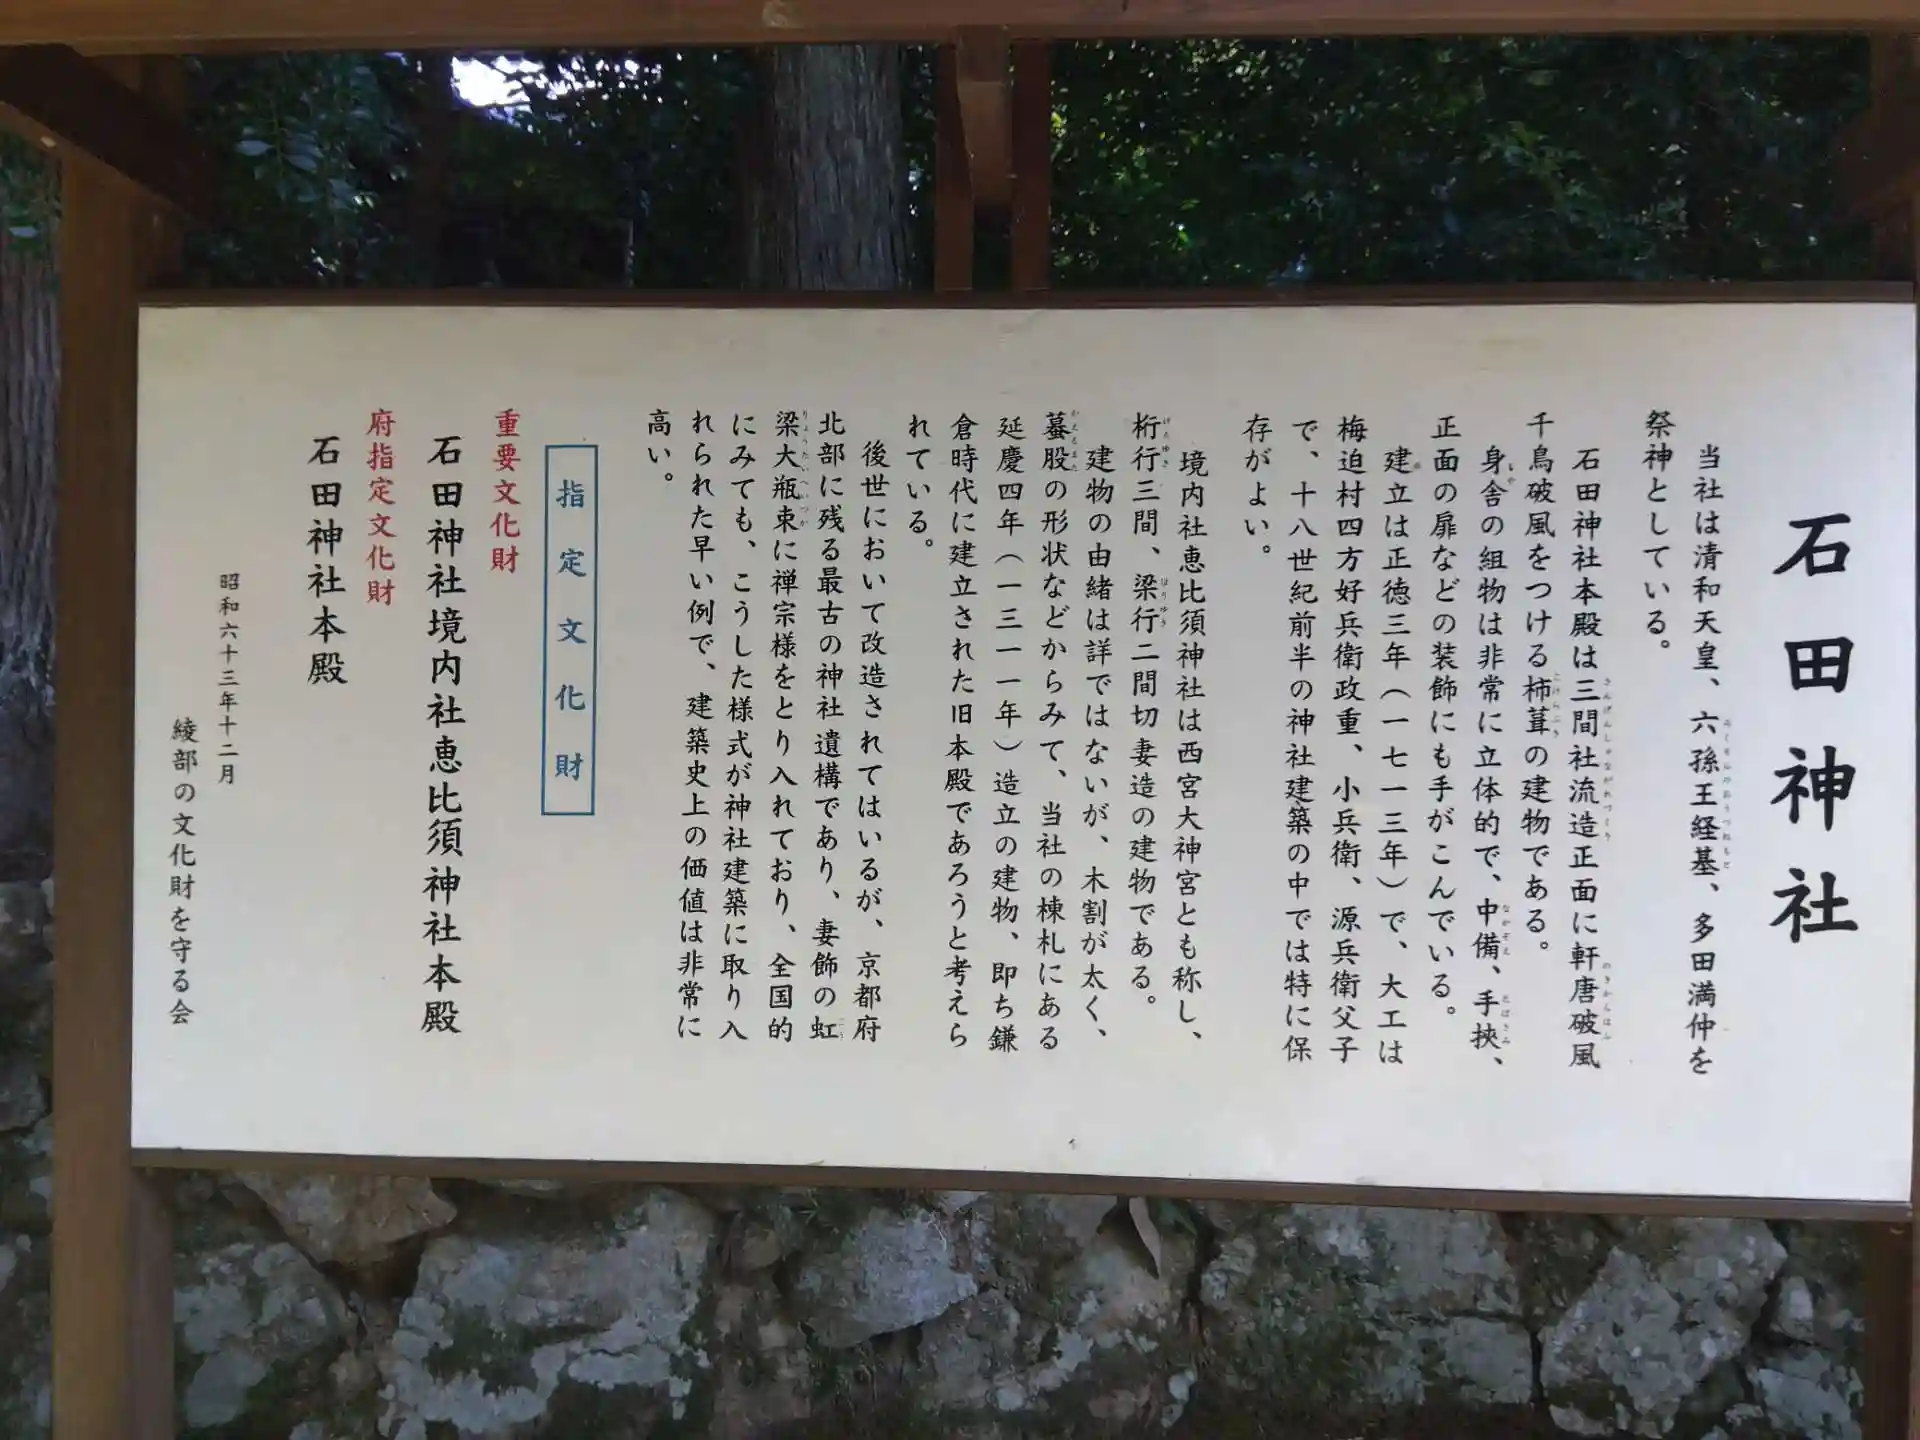 石田神社
当社は清和天皇、六孫王経基、多田満仲を
祭神としている。
石田神社本殿は三間社流造正面に軒唐破風
千鳥破風をつける柿葺の建物である。
身舎の組物は非常に立体的で、中備、手挟、
正面の扉などの装飾にも手がこんでいる。
建立は正徳三年(一七一三年)で、大工は
梅迫村四方好兵衛政重、小兵衛、源兵衛父子
で、十八世紀前半の神社建築の中では特に保
存がよい。
境内社恵比須神社は西宮大神宮とも称し、
桁行三間、梁行二間切妻造の建物である。
建物の由緒は詳ではないが、木割が太く、
蟇股の形状などからみて、当社の棟札にある
延慶四年(一三一一年)造立の建物、即ち鎌
倉時代に建立された旧本殿であろうと考えら
れている。
後世において改造されてはいるが、京都府
北部に残る最古の神社遺構であり、妻飾の虹
梁大瓶束に禅宗様をとり入れており、全国的
にみても、こうした様式が神社建築に取り入
れられた早い例で、建築史上の価値は非常に
高い。
指定文化財
重要文化財
石田神社境内社恵比須神社本殿
府指定文化財
石田神社本殿
昭和六十三年十二月
綾部の文化財を守る会